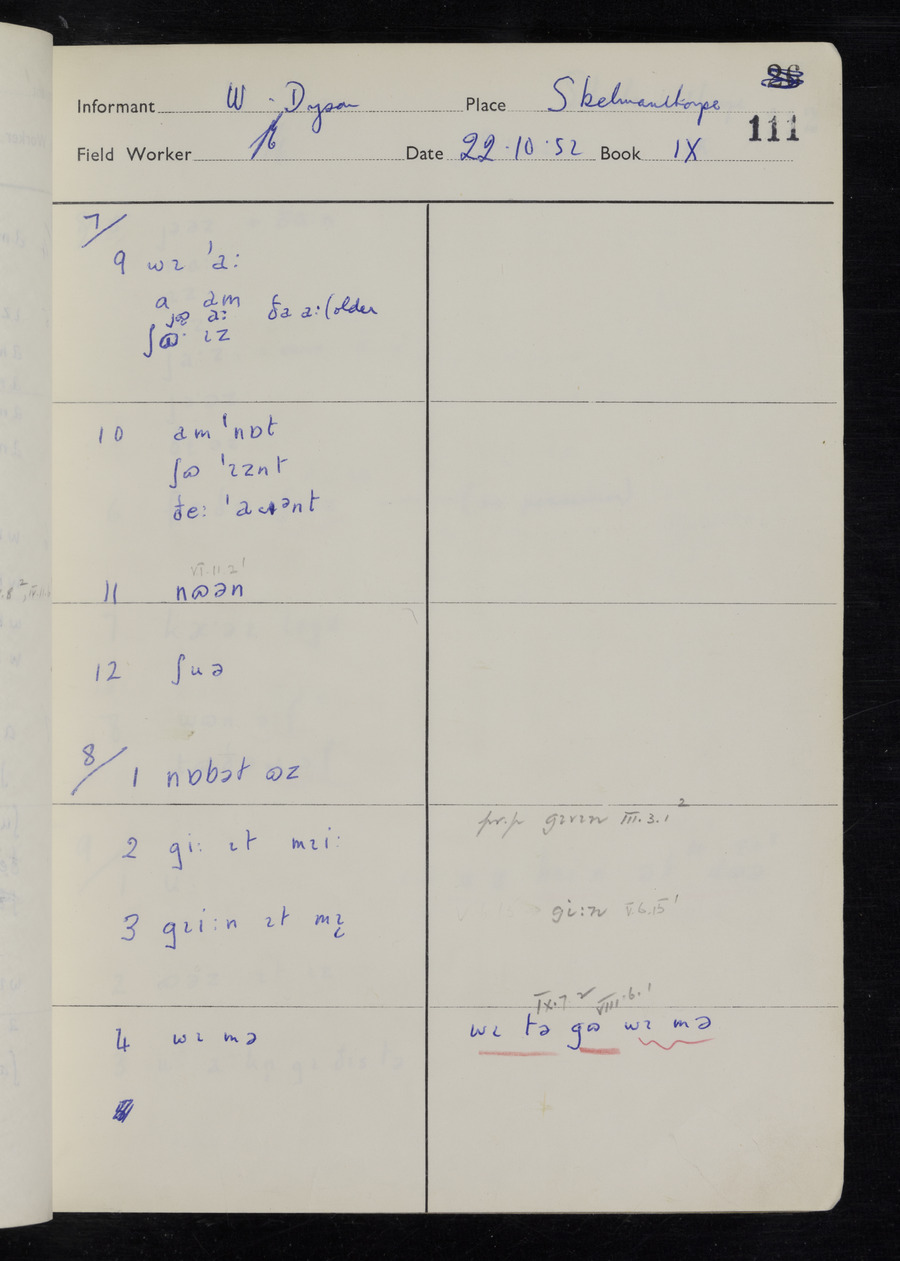 26
Informant W. Dyson Place Skelmanthorpe
111
Field Worker Date 22.10.52 Book IX
7/
9 wɪ ˈa:
a am
jɷ a: ða a: (older
ʃɷ ɪz
10 am ˈnɒt
ʃɷ ˈɪznt
ðe: ˈaənt
VI.11.2¹
11 nɷən
12 ʃuə
8/ 1 nɒbət ɷz
2 gi: ɪt mɪi: pr.p gɪvɪn III.3.1²
3 gɪi:n ɪt mɪ gi:n V.6.15¹
IX.7.2 VIII.6.1
4 wɪ mə wɪ tə gɷ wɪ mə